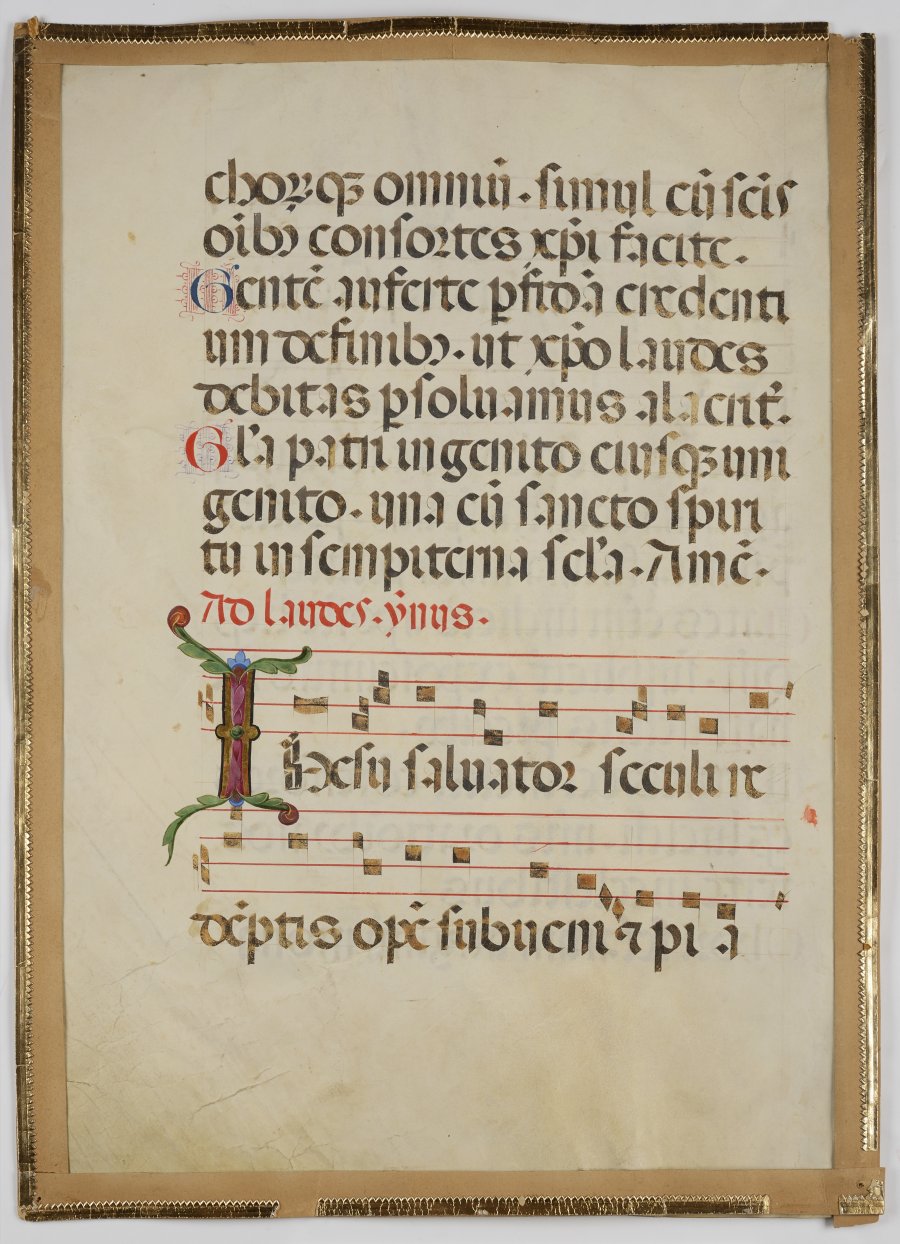 choꝝqꝫ omniū · simul cū scīs
oībꝰ consortes xp̄i facite ·
Gentē auferte ꝑfidā credenti
um definibꝰ · ut xp̄o laudes
debitas ꝑsoluamus alacrit̄ ·
Gl'a patri ingenito eiusqꝫ uni
genito · una cū sancto spiri
tu in sempiterna scl'a · Amē ·
Ad laudes · ẏnus ·
Ihesu saluator seculi re
dēptis opē subueni ⁊ pi a